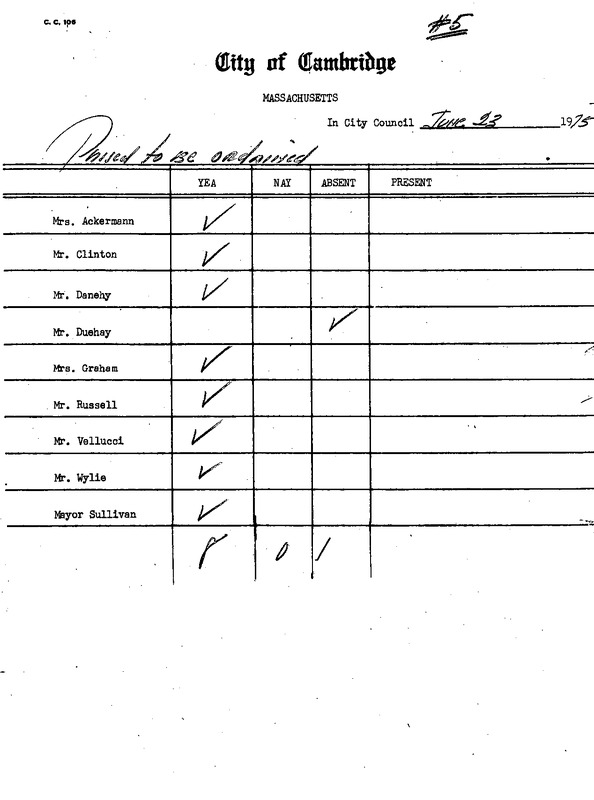 C. C. 106
#5
City of Cambridge
MASSACHUSETTS
In City Council June 23 1975
Passed to be ordained
YEA NAY ABSENT PRESENT
Mrs. Ackermann ✓
Mr. Clinton ✓
Mr. Danehy ✓
Mr. Duehay ✓
Mrs. Graham ✓
Mr. Russell ✓
Mr. Vellucci ✓
Mr. Wylie ✓
Mayor Sullivan ✓
8 0 1